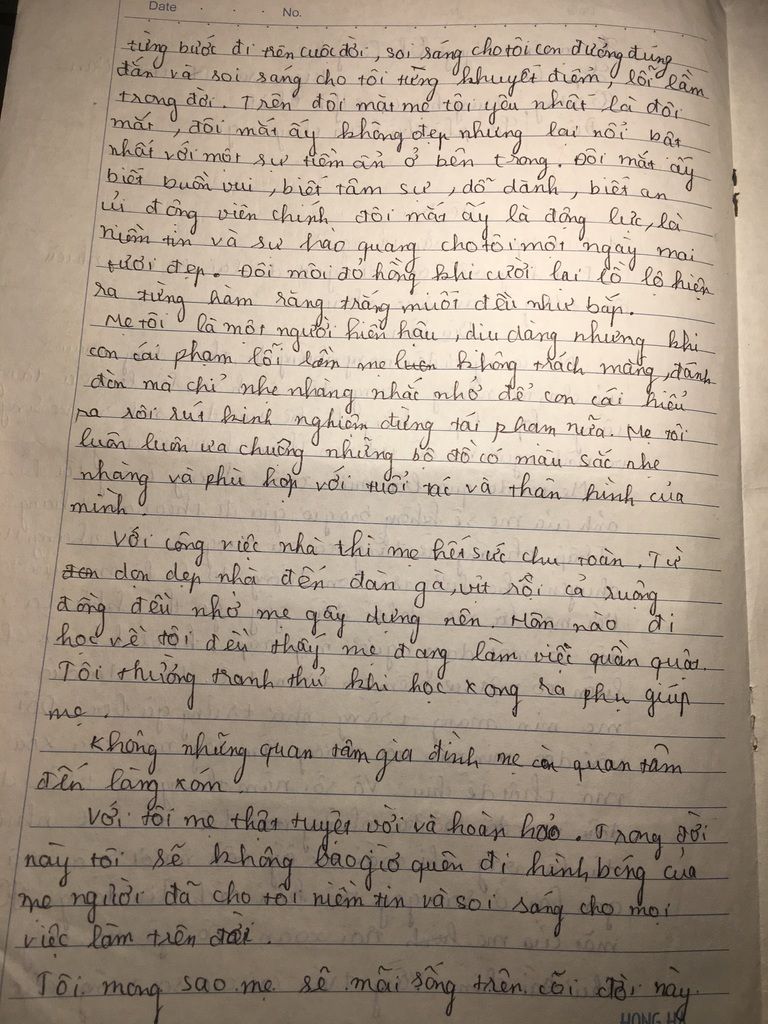 Date . . . No.
từng bước đi trên cuộc đời, soi sáng cho tôi con đường đúng
đắn và soi sáng cho tôi từng khuyết điểm, lỗi lầm
trong đời. Trên đôi mắt mẹ tôi yêu nhất là đôi
mắt, đôi mắt ấy không đẹp nhưng lại nổi bật
nhất với một sự tiềm ẩn ở bên trong. Đôi mắt ấy
biết buồn vui, biết tâm sự, dỗ dành, biết an
ủi động viên chính đôi mắt ấy là động lực, là
niềm tin và sự hào quang cho tôi một ngày mai
tươi đẹp. Đôi môi đỏ hồng khi cười lại lồ lộ hiện
ra từng hàm răng trắng muốt đều như bắp.
Mẹ tôi là một người hiền hậu, dịu dàng nhưng khi
con cái phạm lỗi lầm mẹ luôn không trách mắng, đánh
đòn mà chỉ nhẹ nhàng nhắc nhở để con cái hiểu
ra rồi rút kinh nghiệm đừng tái phạm nữa. Mẹ tôi
luôn luôn ưa chuộng những bộ đồ có màu sắc nhẹ
nhàng và phù hợp với tuổi tác và thân hình của
mình.
Với công việc nhà thì mẹ hết sức chu toàn. Từ
dọn dẹp nhà đến đàn gà, vịt rồi cả ruộng
đồng đều nhờ mẹ gây dựng nên. Hôm nào đi
học về tôi đều thấy mẹ đang làm việc quần quật.
Tôi thường tranh thủ khi học xong ra phụ giúp
mẹ.
Không những quan tâm gia đình mẹ còn quan tâm
đến làng xóm.
Với tôi mẹ thật tuyệt vời và hoàn hảo. Trong đời
này tôi sẽ không bao giờ quên đi hình bóng của
mẹ người đã cho tôi niềm tin và soi sáng cho mọi
việc làm trên đời.
Tôi mong sao mẹ sẽ mãi sống trên cõi đời này.
HONG HA